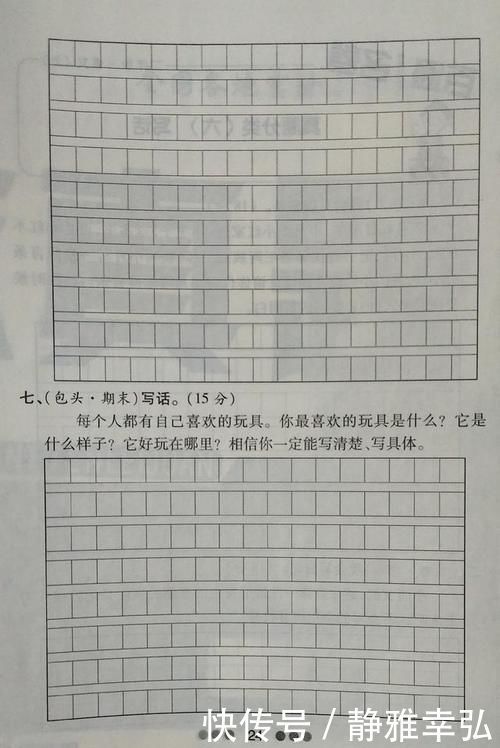 七、(包头·期末)写话。(15分)
每个人都有自己喜欢的玩具。你最喜欢的玩具是什么？它是
什么样子？它好玩在哪里？相信你一定能写清楚、写具体。
24
快传号／静雅幸弘